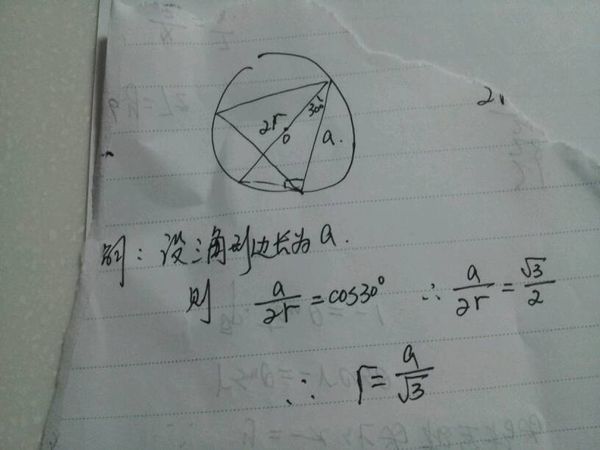 2r
30°
O
a
解：设三角形边长为a.
则 a/2r = cos30° ∴ a/2r = √3/2
∴ r = a/√3